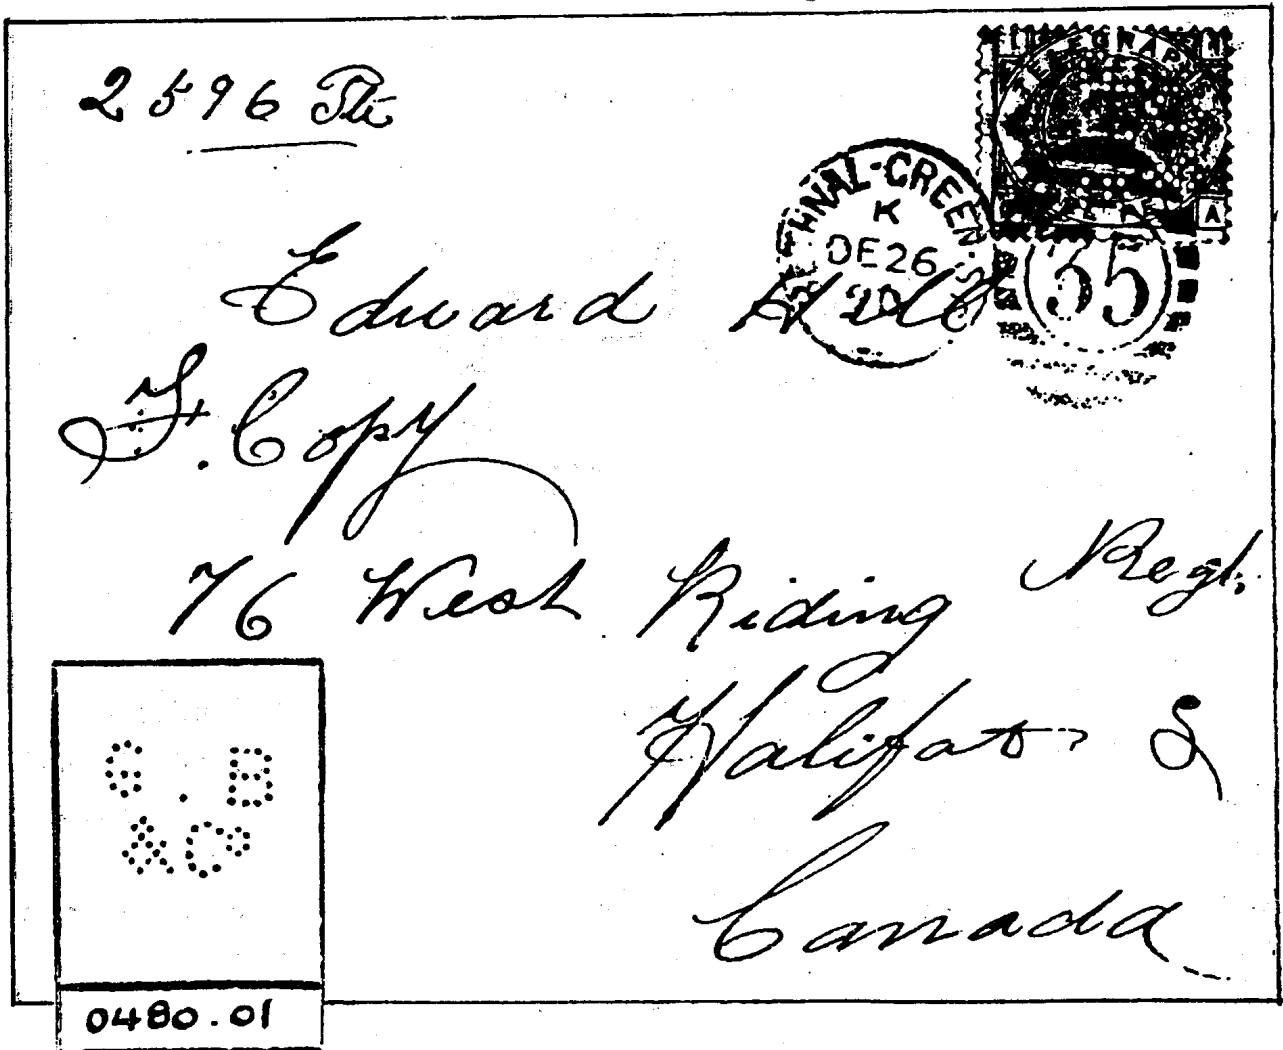 2596 Pte
TELEGRAPHS
A
BETHNAL-GREEN
K
DE26
35
Edward Holt
F. Copy
76 West Riding Regt.
Halifax
Canada
G . B
&Co
0480.01